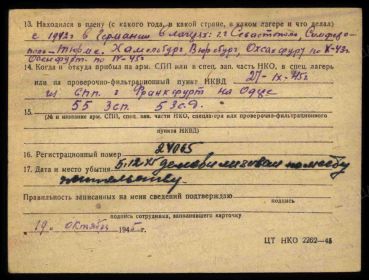 13. Находился в плену (с какого года, в какой стране, в каком лагере и что делал)
с 1942 в Германии в лагере: г. Севастополь, Симферо-
поль тюрьме, Хаммельбург, Вюрцбург, Охсенфурт по X-43г.
по IV-45г.
14. Когда и откуда прибыл на арм. СПП или в спец. зап. часть НКО, в спец. лагерь
или на проверочно-фильтрационный пункт НКВД 27-IX-45г
из Спп г. Франкфурт на Одре
15. 55 зсп. 5 зсд.
(№ и название арм. СПП, зап. части НКО, спецлагеря или проверочно-фильтрационного
пункта НКВД)
16. Регистрационный номер 24065
17. Дата и место убытия. 5.12.45 демобилизован по месту
жительству.
Правильность записанных на меня сведений подтверждаю
подпись
подпись сотрудника, заполнявшего карточку
19 октября 1945 г.
ЦТ НКО 2262—45